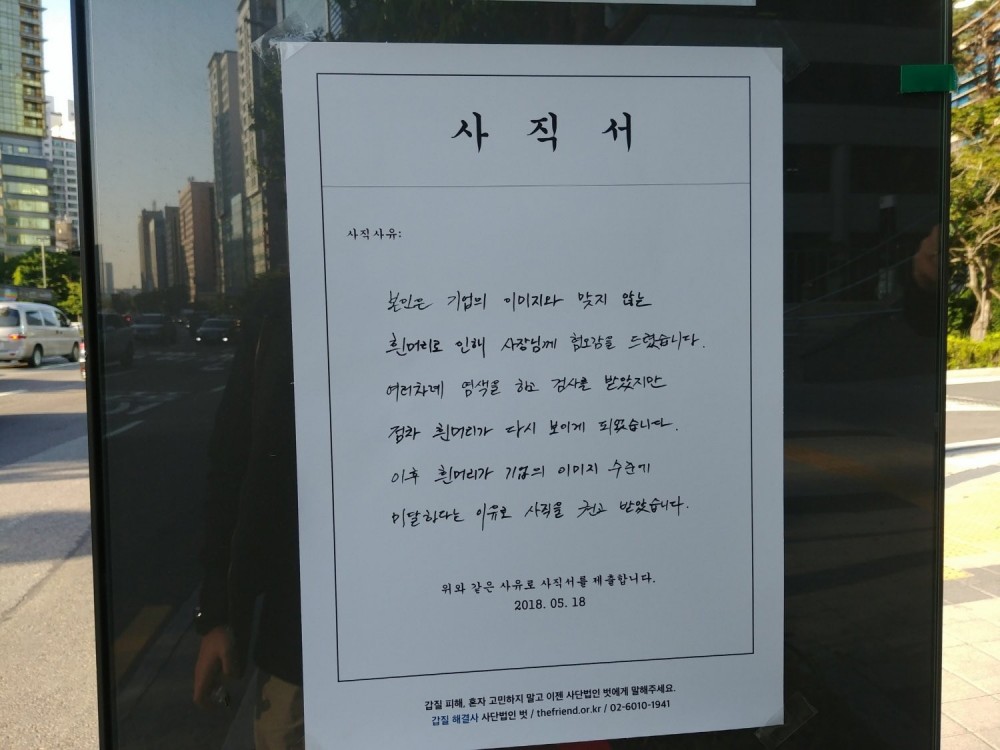 사 직 서
사직사유:
본인은 기업의 이미지와 맞지 않는
흰머리로 인해 사장님께 혐오감을 드렸습니다.
여러차례 염색을 하고 검사를 받았지만
점차 흰머리가 다시 보이게 되었습니다.
이후 흰머리가 기업의 이미지 수준에
미달한다는 이유로 사직을 권고 받았습니다.
위와 같은 사유로 사직서를 제출합니다.
2018. 05. 18
갑질 피해, 혼자 고민하지 말고 이젠 사단법인 벗에게 말해주세요.
갑질 해결사 사단법인 벗 / thefriend.or.kr / 02-6010-1941